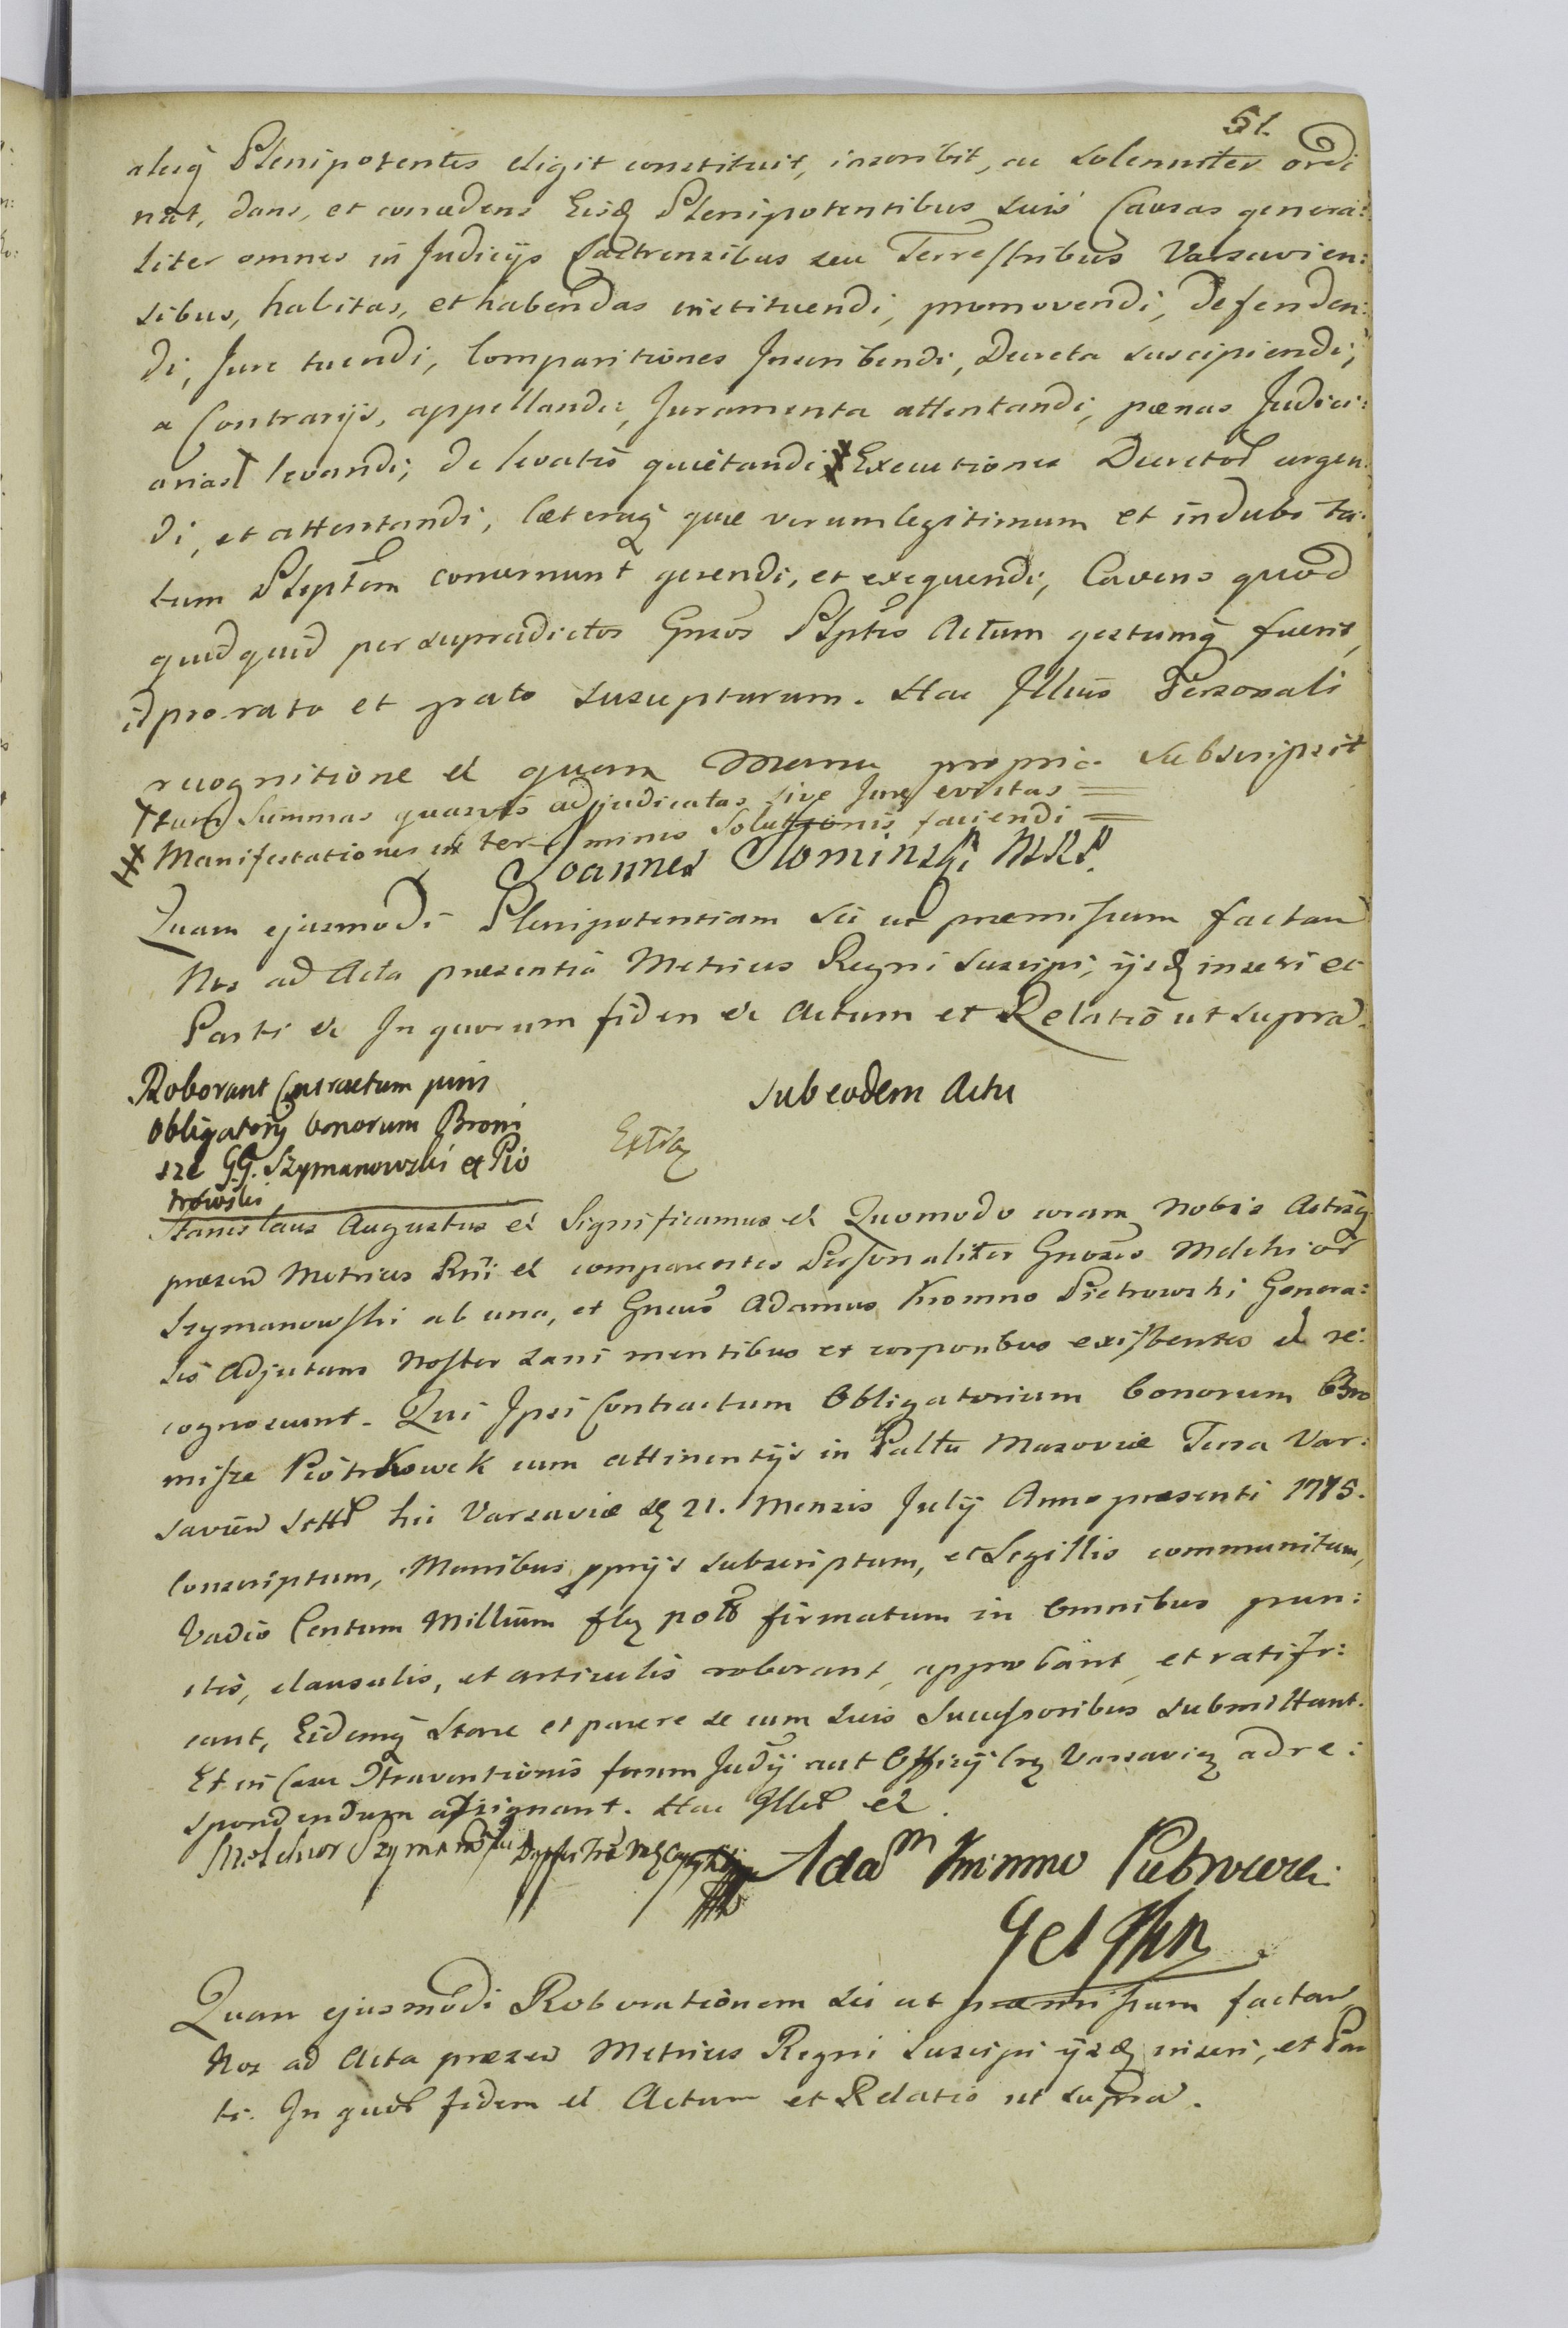 51.
aliosq Plenipotentes eligit constituit, inscribit, ac solenniter ordi
nat, dans, et concedens Eisdq Plenipotentibus suis Causas genera:
liter omnes in Judicijs Castrensibus seu Terrestribus Varsavien:
sibus, habitas, et habendas instituendi, promovendi, defenden:
di, Jure tuendi, Comparitiones Inscribendi, Decreta suscipiendi,
a Contrarijs, appellandi, Juramenta attentandi, pænas Judici:
arias levandi, de levatis quietandi Executiones Decretor urgen:
di, et attentandi, Cæteraq quæ verum legitimum et indubita:
tum Plenptem concernunt gerendi, et exequendi, Cavens quod
quidquid per supradictos Gnsos Plptes Actum gestumq fuerit,
id pro rato et grato suscepturum. Hac Illius Personali
recognitione et quam Manu propria subscripsit
tum Summas quasvis adjudicatas sive Jure evictas =
Manifestationes in terminis Solutionis faciendi =
Joannes Slominski MRP.
Quam ejusmodi Plenipotentiam sic ut præmissum factam
Nos ad Acta præsentia Metrices Regni suscipi, ijsdq inseri et
Parti etc In quorum fidem etc Actum et Relatio ut supra.
Roborant Contractum juris
Obligatorij bonorum Broni
sze G.G. Szymanowski et Pio
trowski
sub eodem Actu
Extraz
Stanislaus Augustus et Significamus et Quomodo coram Nobis Actisq
præsen Metrices Rni et comparentes Personaliter Gnosus Melchior
Szymanowski ab una, et Gnsus Adamus Kromno Pietrowski Genera:
lis Adjutans Noster sani mentibus et corporibus existentes et re:
cognoscunt. Qui Ipsi Contractum Obligatorium bonorum Bro
nisze Piotrkowek cum attinentijs in Palttu Masoviæ Terra Var:
savien sitt hic Varsaviæ d 21. Mensis Julij Anno præsenti 1785.
Conscriptum, Manibus pprijs subscriptum, et Sigillis communitum,
Vadio Centum Millium flq polł firmatum in Omnibus pun:
ctis, clausulis, et articulis roborant, approbant, et ratifi:
cant, Eidemq Stare et parere se cum suis Successoribus submittant.
Et in Casu Contraventionis forum Judij aut Officij Crz Varsavien ad re:
spondendum assignant. Hac Illor et.
Melchior Szymanowski
Adam Kromno Pietrowski
Quam ejusmodi Roborationem sic ut præmissum factam
Nos ad Acta præsen Metrices Regni suscipi ijsdq inseri, et Par
ti. In quor fidem et Actum et Relatio ut supra.